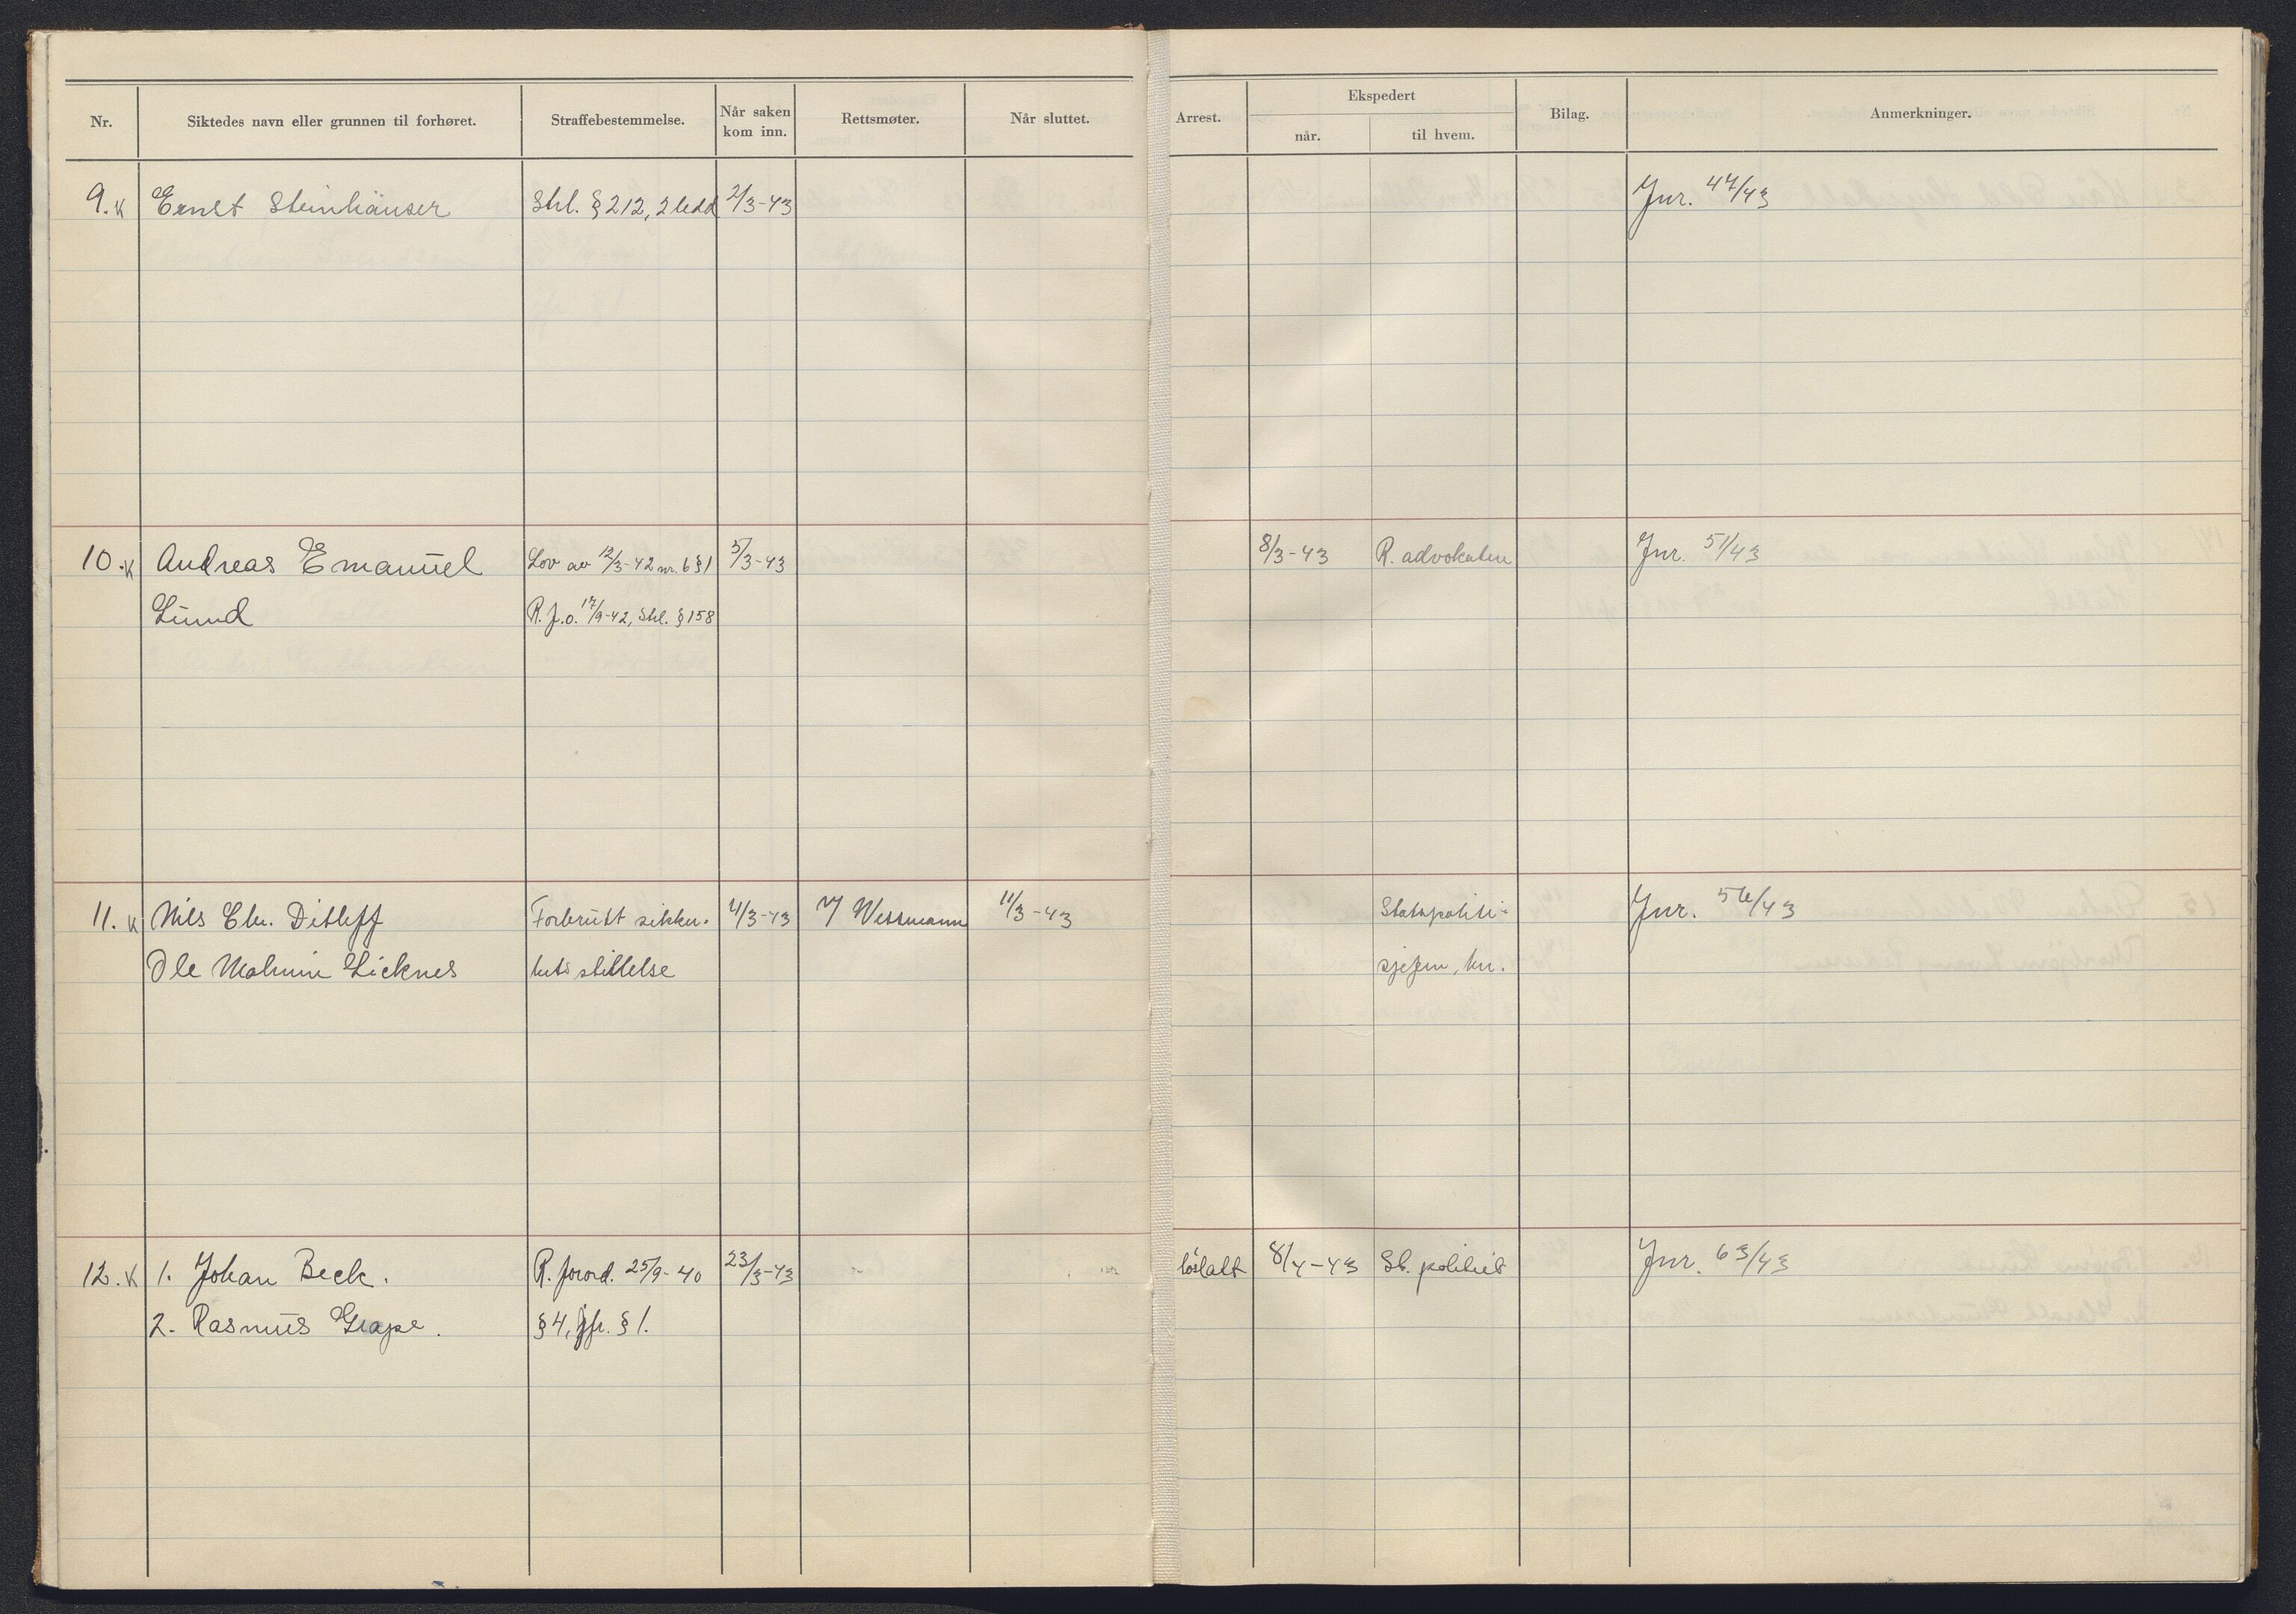 Nr. Siktedes navn eller grunnen til forhøret. Straffebestemmelse. Når saken kom inn. Rettsmøter. Når sluttet. Arrest. Ekspedert når. til hvem. Bilag. Anmerkninger.
9. K Ernst Steinhäuser Strl. § 212, 2 ledd 2/3-43 Jnr. 47/43
10. K Andreas Emanuel Lov av 12/3-42 nr. 6 § 1 5/3-43 8/3-43 R. advokaten Jnr. 51/43
Lund R.f.o. 17/9-42, Strl. § 158
11. K Nils Chr. Ditleff Forbrutt sikker- 11/3-43 11/3-43 Statspoliti- Jnr. 56/43
Ole Malmin Licknes hets stillelse sjefen, her.
12. K 1. Johan Beck. R. forord. 25/9-40 23/3-43 löslatt 8/4-43 St. politiet Jnr. 63/43
2. Rasmus Grape. § 4, jfr. § 1.